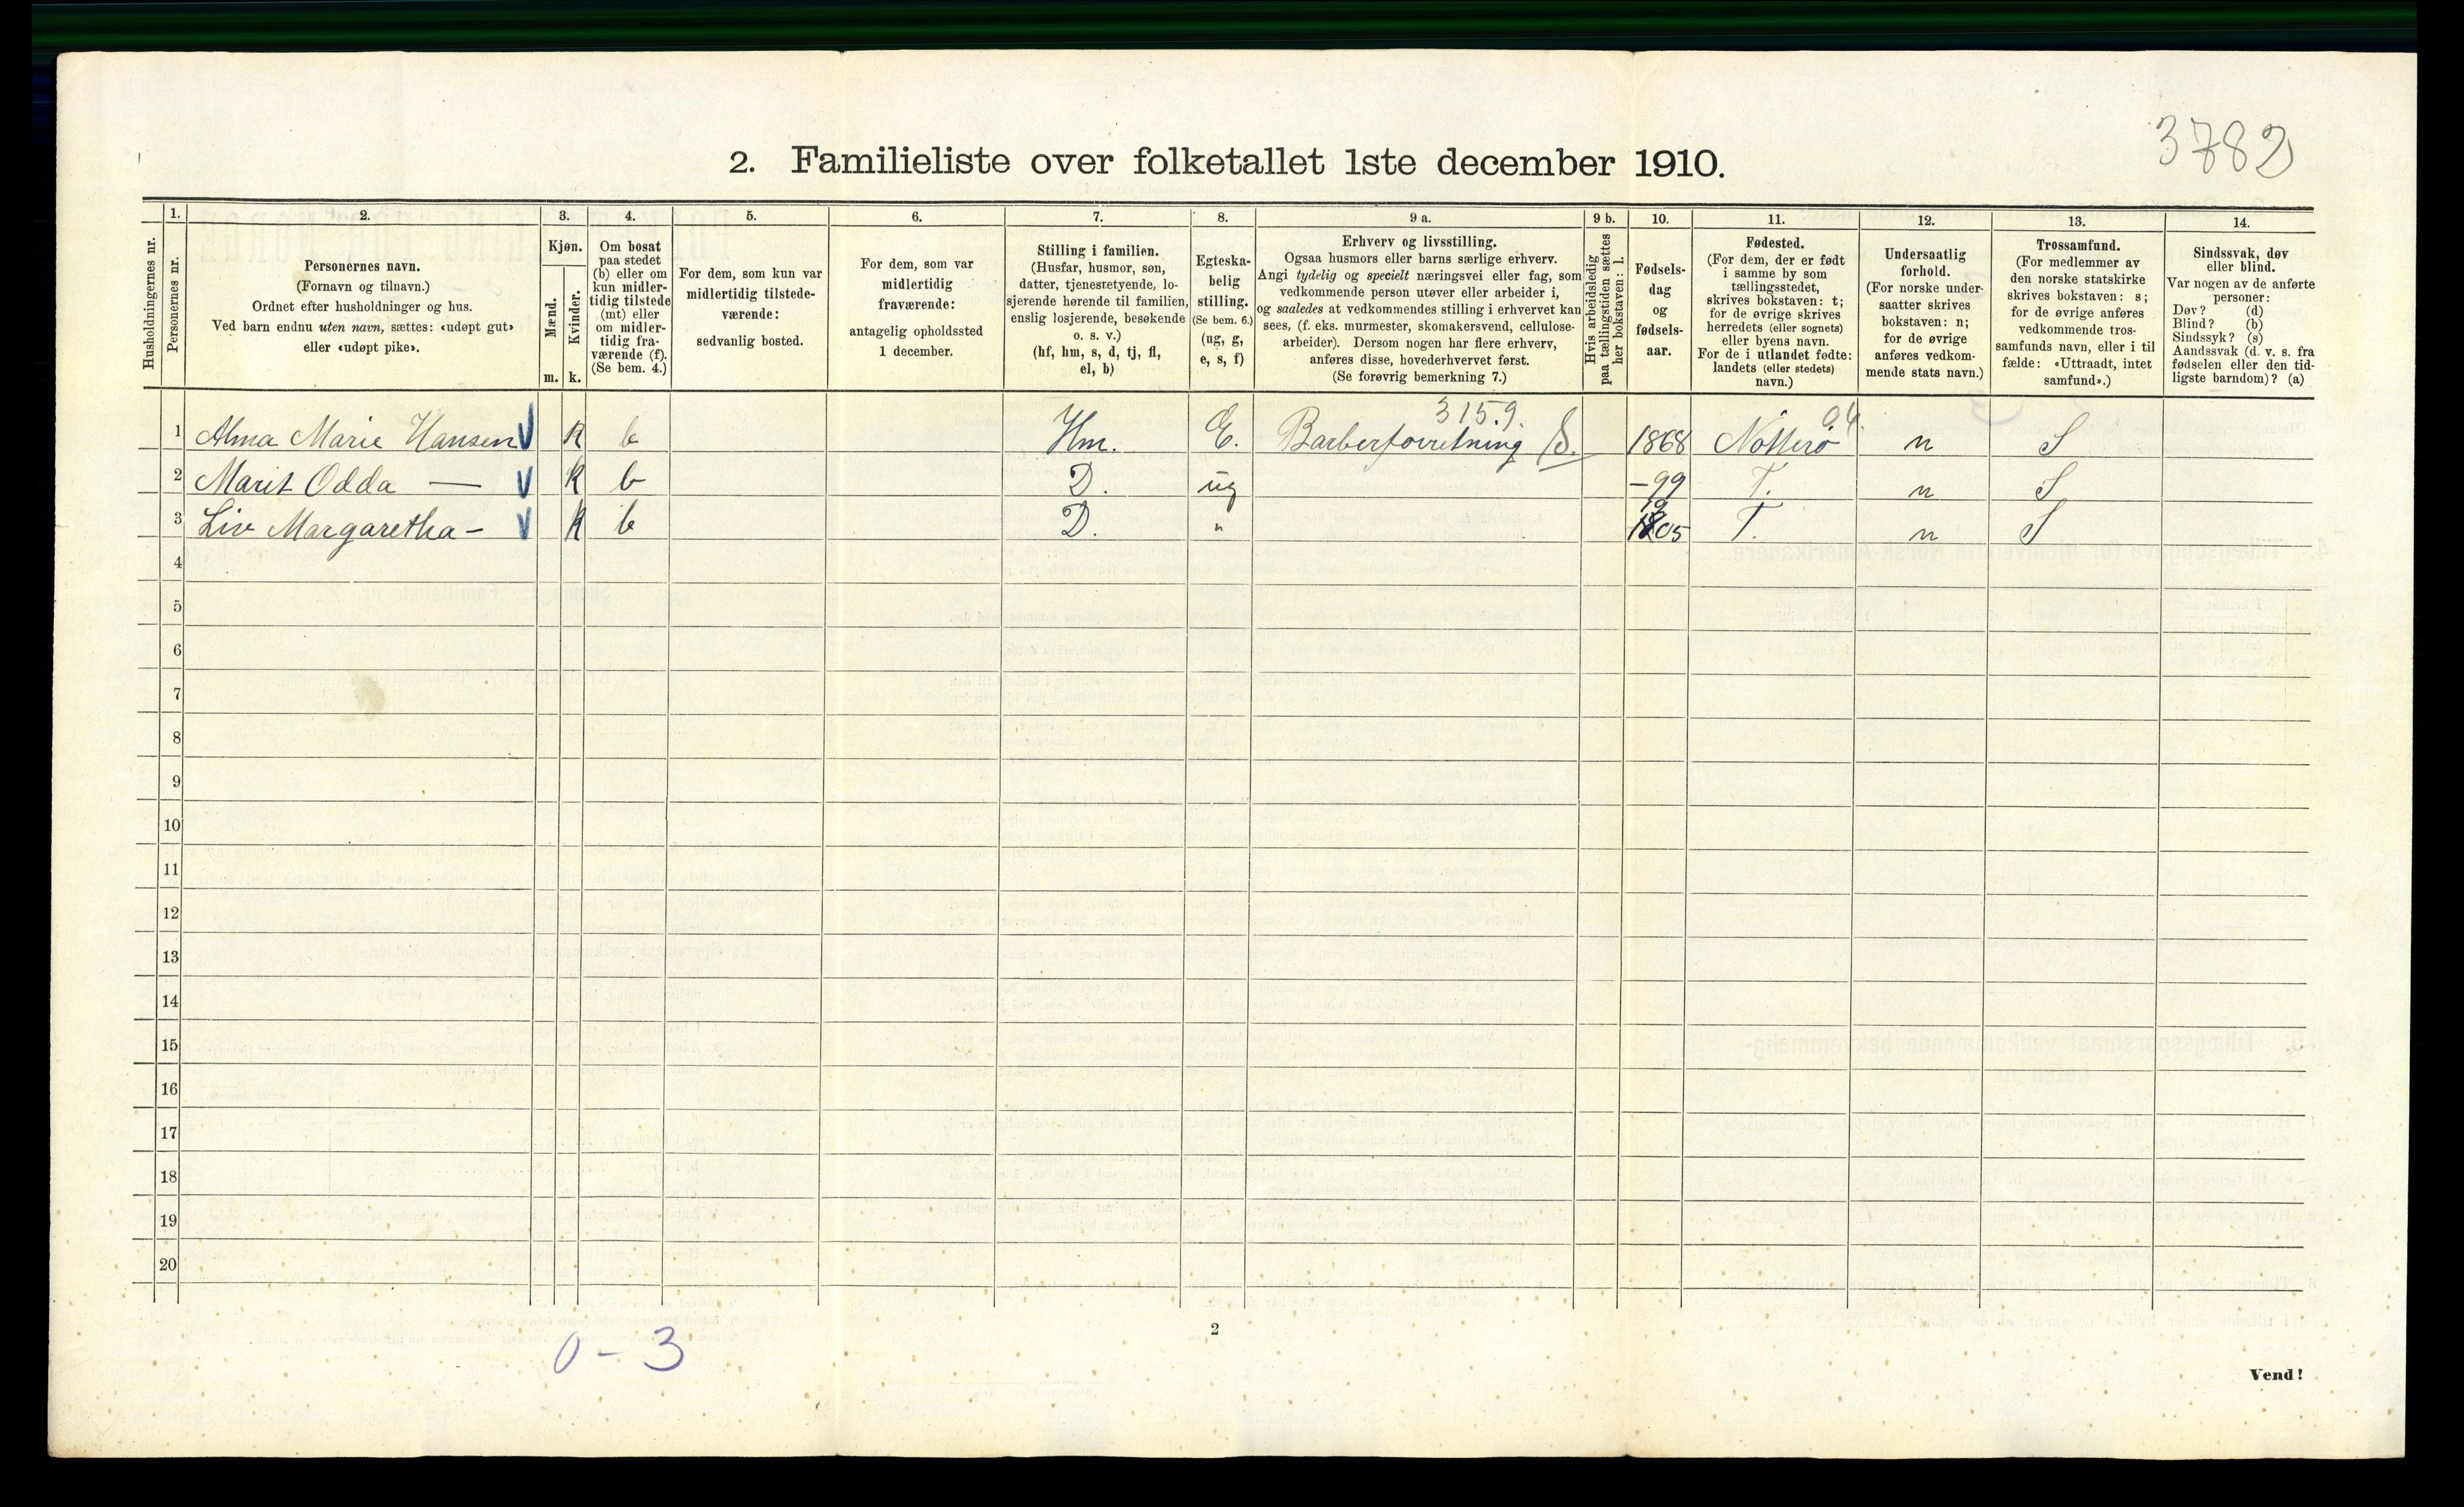 3782
2. Familieliste over folketallet 1ste december 1910.
Husholdningernes nr.
1.
Personernes nr.
2.
Personernes navn.
(Fornavn og tilnavn.)
Ordnet efter husholdninger og hus.
Ved barn endnu uten navn, sættes: «udøpt gut»
eller «udøpt pike».
3.
Kjøn.
Mænd.
Kvinder.
m. k.
4.
Om bosat
paa stedet
(b) eller om
kun midler-
tidig tilstede
(mt) eller
om midler-
tidig fra-
værende (f).
(Se bem. 4.)
5.
For dem, som kun var
midlertidig tilstede-
værende:
sedvanlig bosted.
6.
For dem, som var
midlertidig
fraværende:
antagelig opholdssted
1 december.
7.
Stilling i familien.
(Husfar, husmor, søn,
datter, tjenestetyende, lo-
sjerende hørende til familien,
enslig losjerende, besøkende
o. s. v.)
(hf, hm, s, d, tj, fl,
el, b)
8.
Egteska-
belig
stilling.
(Se bem. 6.)
(ug, g,
e, s, f)
9 a.
Erhverv og livsstilling.
Ogsaa husmors eller barns særlige erhverv.
Angi tydelig og specielt næringsvei eller fag, som
vedkommende person utøver eller arbeider i,
og saaledes at vedkommendes stilling i erhvervet kan
sees, (f. eks. murmester, skomakersvend, cellulose-
arbeider). Dersom nogen har flere erhverv,
anføres disse, hovederhvervet først.
(Se forøvrig bemerkning 7.)
9 b.
Hvis arbeidsledig
paa tællingstiden sættes
her bokstaven: l.
10.
Fødsels-
dag
og
fødsels-
aar.
11.
Fødested.
(For dem, der er født
i samme by som
tællingsstedet,
skrives bokstaven: t;
for de øvrige skrives
herredets (eller sognets)
eller byens navn.
For de i utlandet fødte:
landets (eller stedets)
navn.)
12.
Undersaatlig
forhold.
(For norske under-
saatter skrives
bokstaven: n;
for de øvrige
anføres vedkom-
mende stats navn.)
13.
Trossamfund.
(For medlemmer av
den norske statskirke
skrives bokstaven: s;
for de øvrige anføres
vedkommende tros-
samfunds navn, eller i til
fælde: «Uttraadt, intet
samfund».)
14.
Sindssvak, døv
eller blind.
Var nogen av de anførte
personer:
Døv? (d)
Blind? (b)
Sindssyk? (s)
Aandssvak (d. v. s. fra
fødselen eller den tid-
ligste barndom)? (a)
3159. 04.
1 Alma Marie Hansen k b Hm. E. Barberforretning S. 1868 Nøtterø n S
2 Marit Odda — k b D. ug -99 T. n S
3 Liv Margaretha - k b D. " 1905 T. n S
4
5
6
7
8
9
10
11
12
13
14
15
16
17
18
19
20
0 - 3
2
Vend!